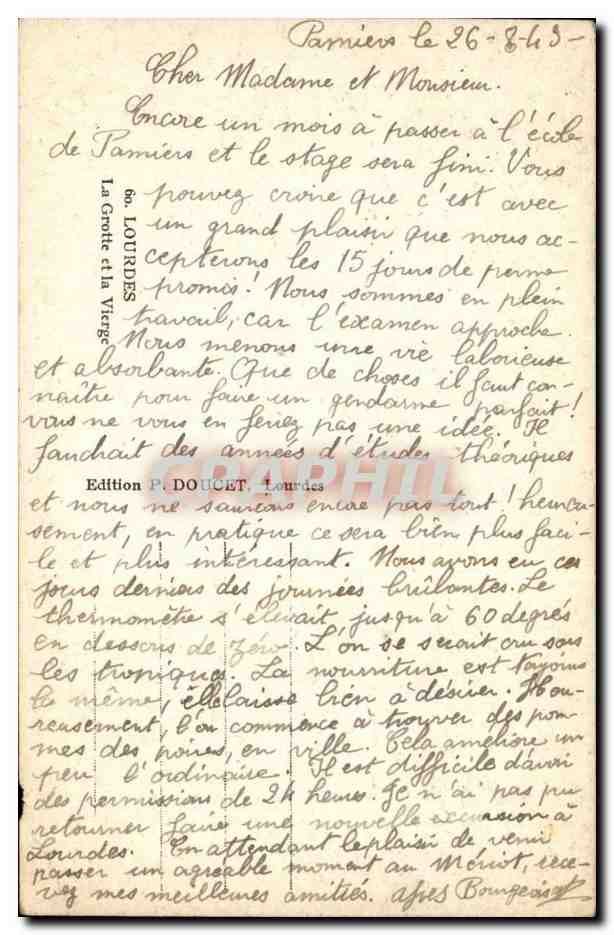 Pamiers le 26-8-49-
Cher Madame et Monsieur.
Encore un mois à passer à l'école
de Pamiers et le stage sera fini. Vous
pouvez croire que c'est avec
un grand plaisir que nous ac-
cepterons les 15 jours de perme
promis! Nous sommes en plein
travail, car l'examen approche.
Nous menons une vie laborieuse
et absorbante. Que de choses il faut con-
naître pour faire un gendarme parfait!
vous ne vous en feriez pas une idée. Il
faudrait des années d'études théoriques
et nous ne saurions encore pas tout! heureu-
sement, en pratique ce sera bien plus faci-
le et plus intéressant. Nous avons eu ces
jours derniers des journées brûlantes. Le
thermomètre s'élevait jusqu'à 60 degrés
en dessous de zéro. L'on se serait cru sous
les tropiques. La nourriture est toujours
la même, elle laisse bien à désirer. Heu-
reusement, l'on commence à trouver des pom-
mes des poires, en ville. Cela améliore un
peu l'ordinaire. Il est difficile d'avoir
des permissions de 24 heures. Je n'ai pas pu
retourner faire une nouvelle excursion à
Lourdes. En attendant le plaisir de venir
passer un agréable moment au Mériot, rece-
vez mes meilleures amitiés.
60. LOURDES
La Grotte et la Vierge
Edition P. DOUCET, Lourdes
CPAPHIL